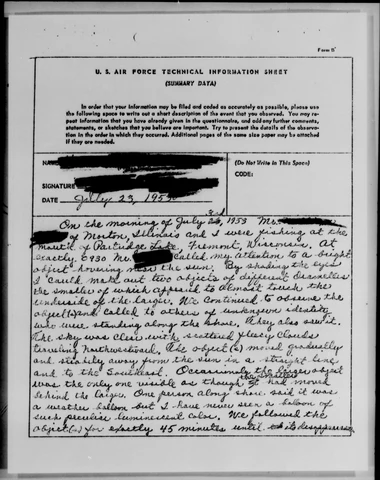 Form B
U. S. AIR FORCE TECHNICAL INFORMATION SHEET
(SUMMARY DATA)
In order that your information may be filed and coded as accurately as possible, please use
the following space to write out a short description of the event that you observed. You may re-
peat information that you have already given in the questionnaire, and add any further comments,
statements, or sketches that you believe are important. Try to present the details of the observa-
tion in the order in which they occurred. Additional pages of the same size paper may be attached
if they are needed.
NAME
(Do Not Write in This Space)
CODE:
SIGNATURE
DATE July 23, 195
On the morning of July 1953 Mr.
of Morton, Illinois and I were fishing at the
mouth of Partridge Lake, Fremont, Wisconsin. At
exactly 0930 Mr called my attention to a bright
object hovering near the sun. By shading the eyes
I could make out two objects of different diameters
the smaller of which appeared to almost touch the
underside of the larger. We continued to observe the
object(s) and called to others of unknown identity
who were standing along the shore. They also saw it.
The sky was clear with scattered fleecy clouds
traveling Northwestward. The object(s) moved gradually
and steadily away from the sun in a straight line
and to the Southeast. Occasionally the larger object
was the only one visible as though the smaller had moved
behind the larger. One person along shore said it was
a weather balloon but I have never seen a balloon of
such peculiar luminescent color. We followed the
object(s) for exactly 45 minutes until its disappearance